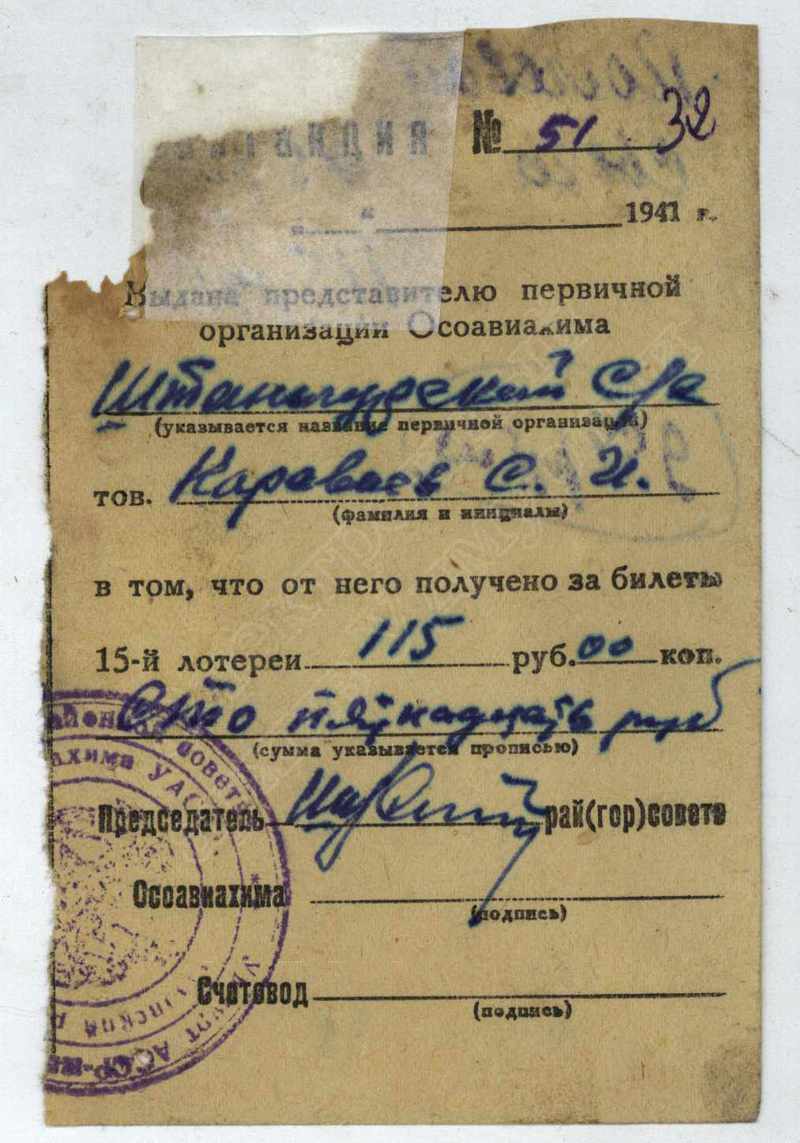 № 51 32
" 1941 г.
Выдана представителю первичной
организации Осоавиахима
Штанигурский с/с
(указывается название первичной организации)
тов. Караваев С. И.
(фамилия и инициалы)
в том, что от него получено за билеты
15-й лотереи 115 руб. 00 коп.
Сто пятнадцать руб
(сумма указывается прописью)
Председатель рай(гор)совета
Осоавиахима
(подпись)
Счетовод
(подпись)